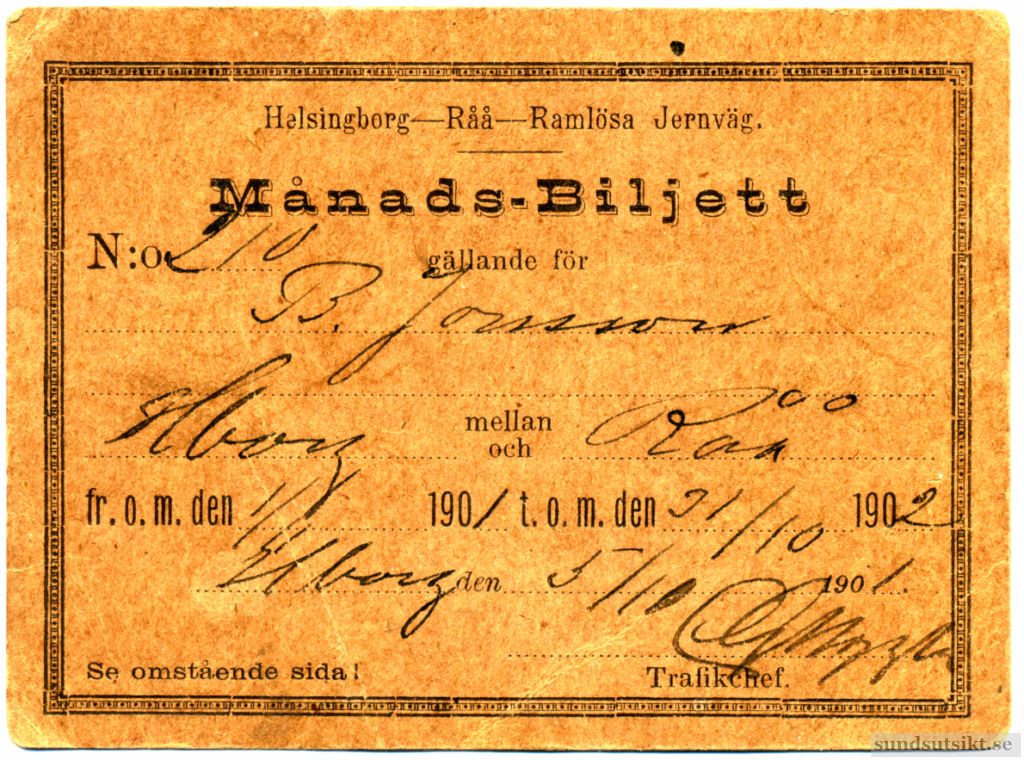 Helsingborg—Råå—Ramlösa Jernväg.
Månads-Biljett
N:o 210 gällande för
B. Jonsson
Hborg mellan och Råå
fr. o. m. den 1/ 1901 t. o. m. den 31/10 1902
Hborg den 5/10 1901.
Se omstående sida! Trafikchef.
sundsutsikt.se